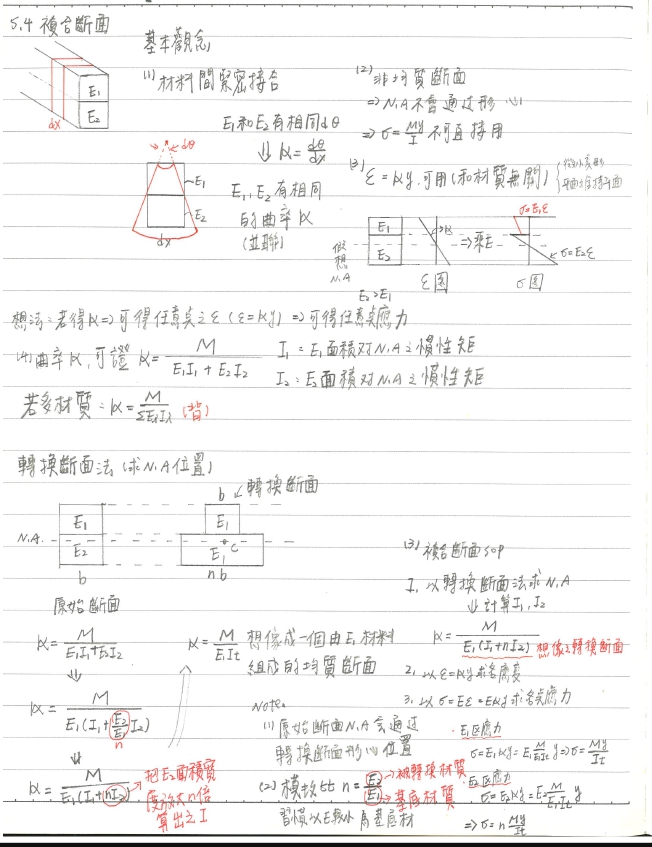 5.4 複合斷面
E₁
E₂
dx
基本觀念
(1) 材料間緊密接合
E₁和E₂有相同dθ
⇓ K = dθ/dx
E₁, E₂ 有相同
的曲率 K
(並聯)
dθ
E₁
E₂
dx
(2) 非均質斷面
⇒ N.A 不會通过形心
⇒ σ = My/I 不可直接用
(3) ε = Ky, 可用 (和材質無關)
平面維持平面
E₁
E₂
假想 N.A
E₂>E₁
K
ε图
⇒乘E
σ=E₁ε
σ=E₂ε
σ图
想法:若得K⇒可得任意點之ε (ε=Ky) ⇒可得任意點應力
(4) 曲率K, 可證 K = M/(E₁I₁ + E₂I₂)
I₁: E₁面積对N.A之慣性矩
I₂: E₂面積对N.A之慣性矩
若多材質: K = M/ΣEᵢIᵢ (背)
轉換斷面法 (求N.A位置)
N.A.
E₁
E₂
b
原始斷面
b
轉換斷面
E₁
E₁
C
nb
K = M/(E₁I₁+E₂I₂)
⇓
K = M/(E₁(I₁+(E₂/E₁)I₂))
n
⇓
K = M/(E₁(I₁+nI₂))
把E₂面積寬
度放大n倍
算出之I
K = M/(E₁It) 想像成一個由E₁材料
組成的均質斷面
Note.
(1) 原始斷面N.A会通过
轉換斷面形心位置
(2) 模數比 n = E₂/E₁
被轉換材質
基底材質
習慣以E較小為基底材
(3) 複合斷面SOP
1. 以轉換斷面法求N.A
⇓ 計算I₁, I₂
K = M/(E₁(I₁+nI₂)) 想像之轉換斷面
2. 以ε=Ky求各應變
3. 以σ=Eε=EKy求各点應力
· E₁区應力
σ=E₁Ky=E₁(M/E₁It)y⇒σ=My/It
· E₂区應力
σ=E₂Ky=E₂(M/E₁It)y
⇒σ=n(My/It)